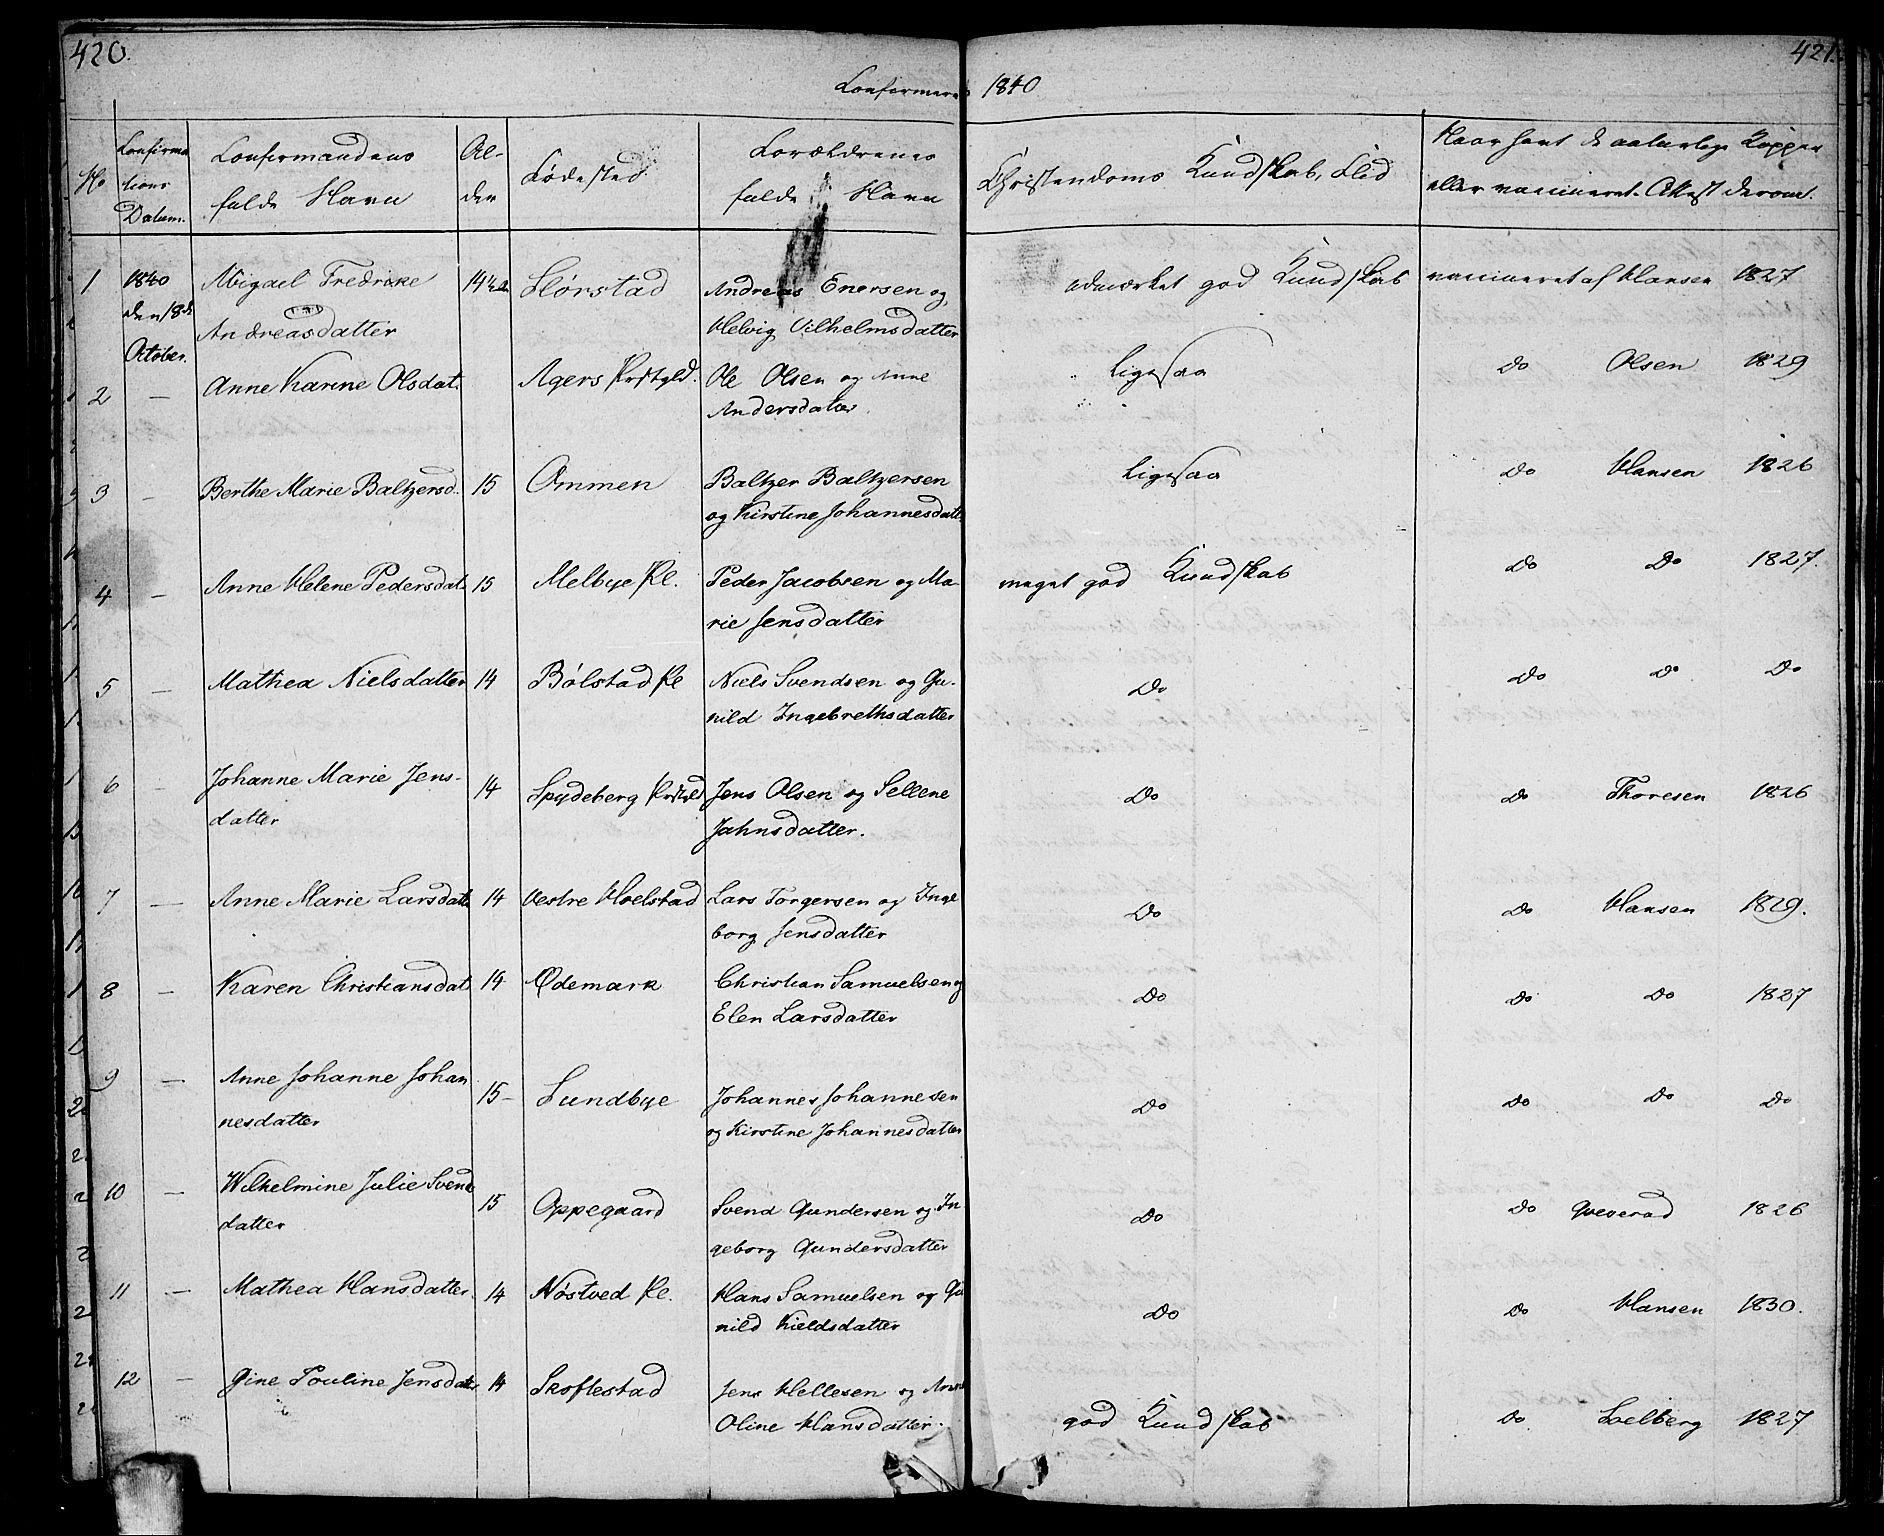 420.
421.
Confirmerede 1840
No
Confirma
tions
Datum.
Confirmandens
fulde Navn
Al-
der
Fødested
Forældrenes
fulde Navn
Christendoms Kundskab, Flid
Naar havt de naturlige Kopper
eller vaccineret. Attest derom.
1 1840 Abigael Fredrikke 14½ Slørstad Andreas Enersen og udmærket god Kundskab vaccineret af Hansen 1827
den 18de Andreasdatter Helvig Vilhelmsdatter
October.
2 — Anne Karine Olsdat. Agers Prstgld. Ole Olsen og Anne ligesaa Do Olsen 1829
Andersdatter.
3 — Berthe Marie Baltzersd. 15 Ommen Baltzer Baltzersen ligesaa Do Hansen 1826
og Kirstine Johannesdatt.
4 — Anne Helene Pedersdat. 15 Melbye Pl. Peder Jacobsen og Ma- meget god Kundskab Do Do 1827.
rie Jensdatter
5 — Mathea Nielsdatter 14 Bølstad Pl Niels Svendsen og Gu- Do Do Do Do
nild Ingebrethsdatter
6 — Johanne Marie Jens- 14 Spydeberg Prstgld Jens Olsen og Sellene Do Do Thoresen 1826
datter Jahnsdatter.
7 — Anne Marie Larsdatt 14 Vestre Hoelstad Lars Torgersen og Inge Do Do Hansen 1829.
borg Jensdatter
8 — Karen Christiansdat 14 Ødemark Christian Samuelsen og Do Do Do 1827
Elen Larsdatter
9 — Anne Johanne Johan 15 Sundbye Johannes Johannesen Do Do Do Do
nesdatter og Kirstine Johannesdatter
10 — Wilhelmine Julie Svend 15 Oppegaard Svend Gundersen og In- Do Do Qveverad 1826
datter geborg Gundersdatter
11 — Mathea Hansdatter. 14 Nøstved Pl. Hans Samuelsen og Gu Do Do Hansen 1830.
nild Kieldsdatter
12 — Gine Pouline Jensdatt 14 Skoflestad Jens Hellesen og Anne god Kundskab Do Solberg 1827
Oline Hansdatter.